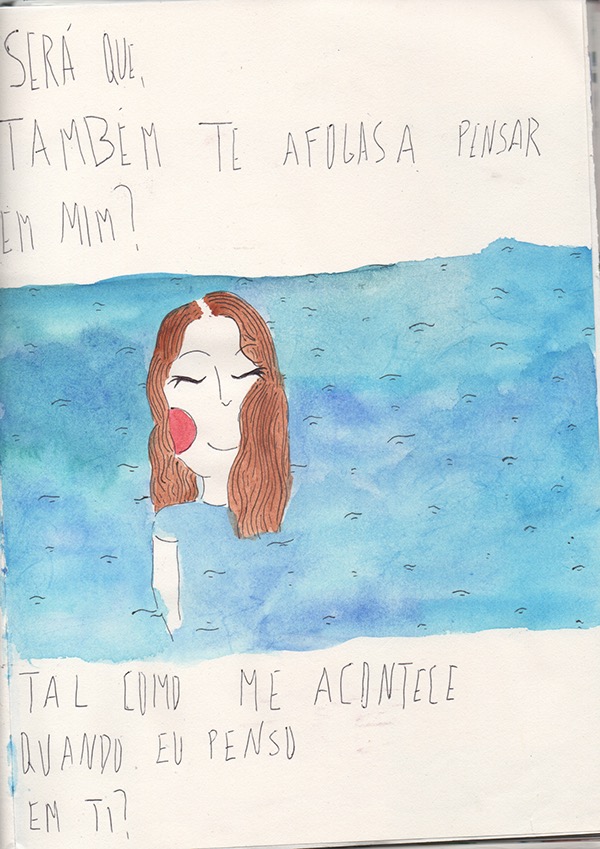 SERÁ QUE,
TAMBÉM TE AFOGAS A PENSAR
EM MIM?
TAL COMO ME ACONTECE
QUANDO EU PENSO
EM TI?